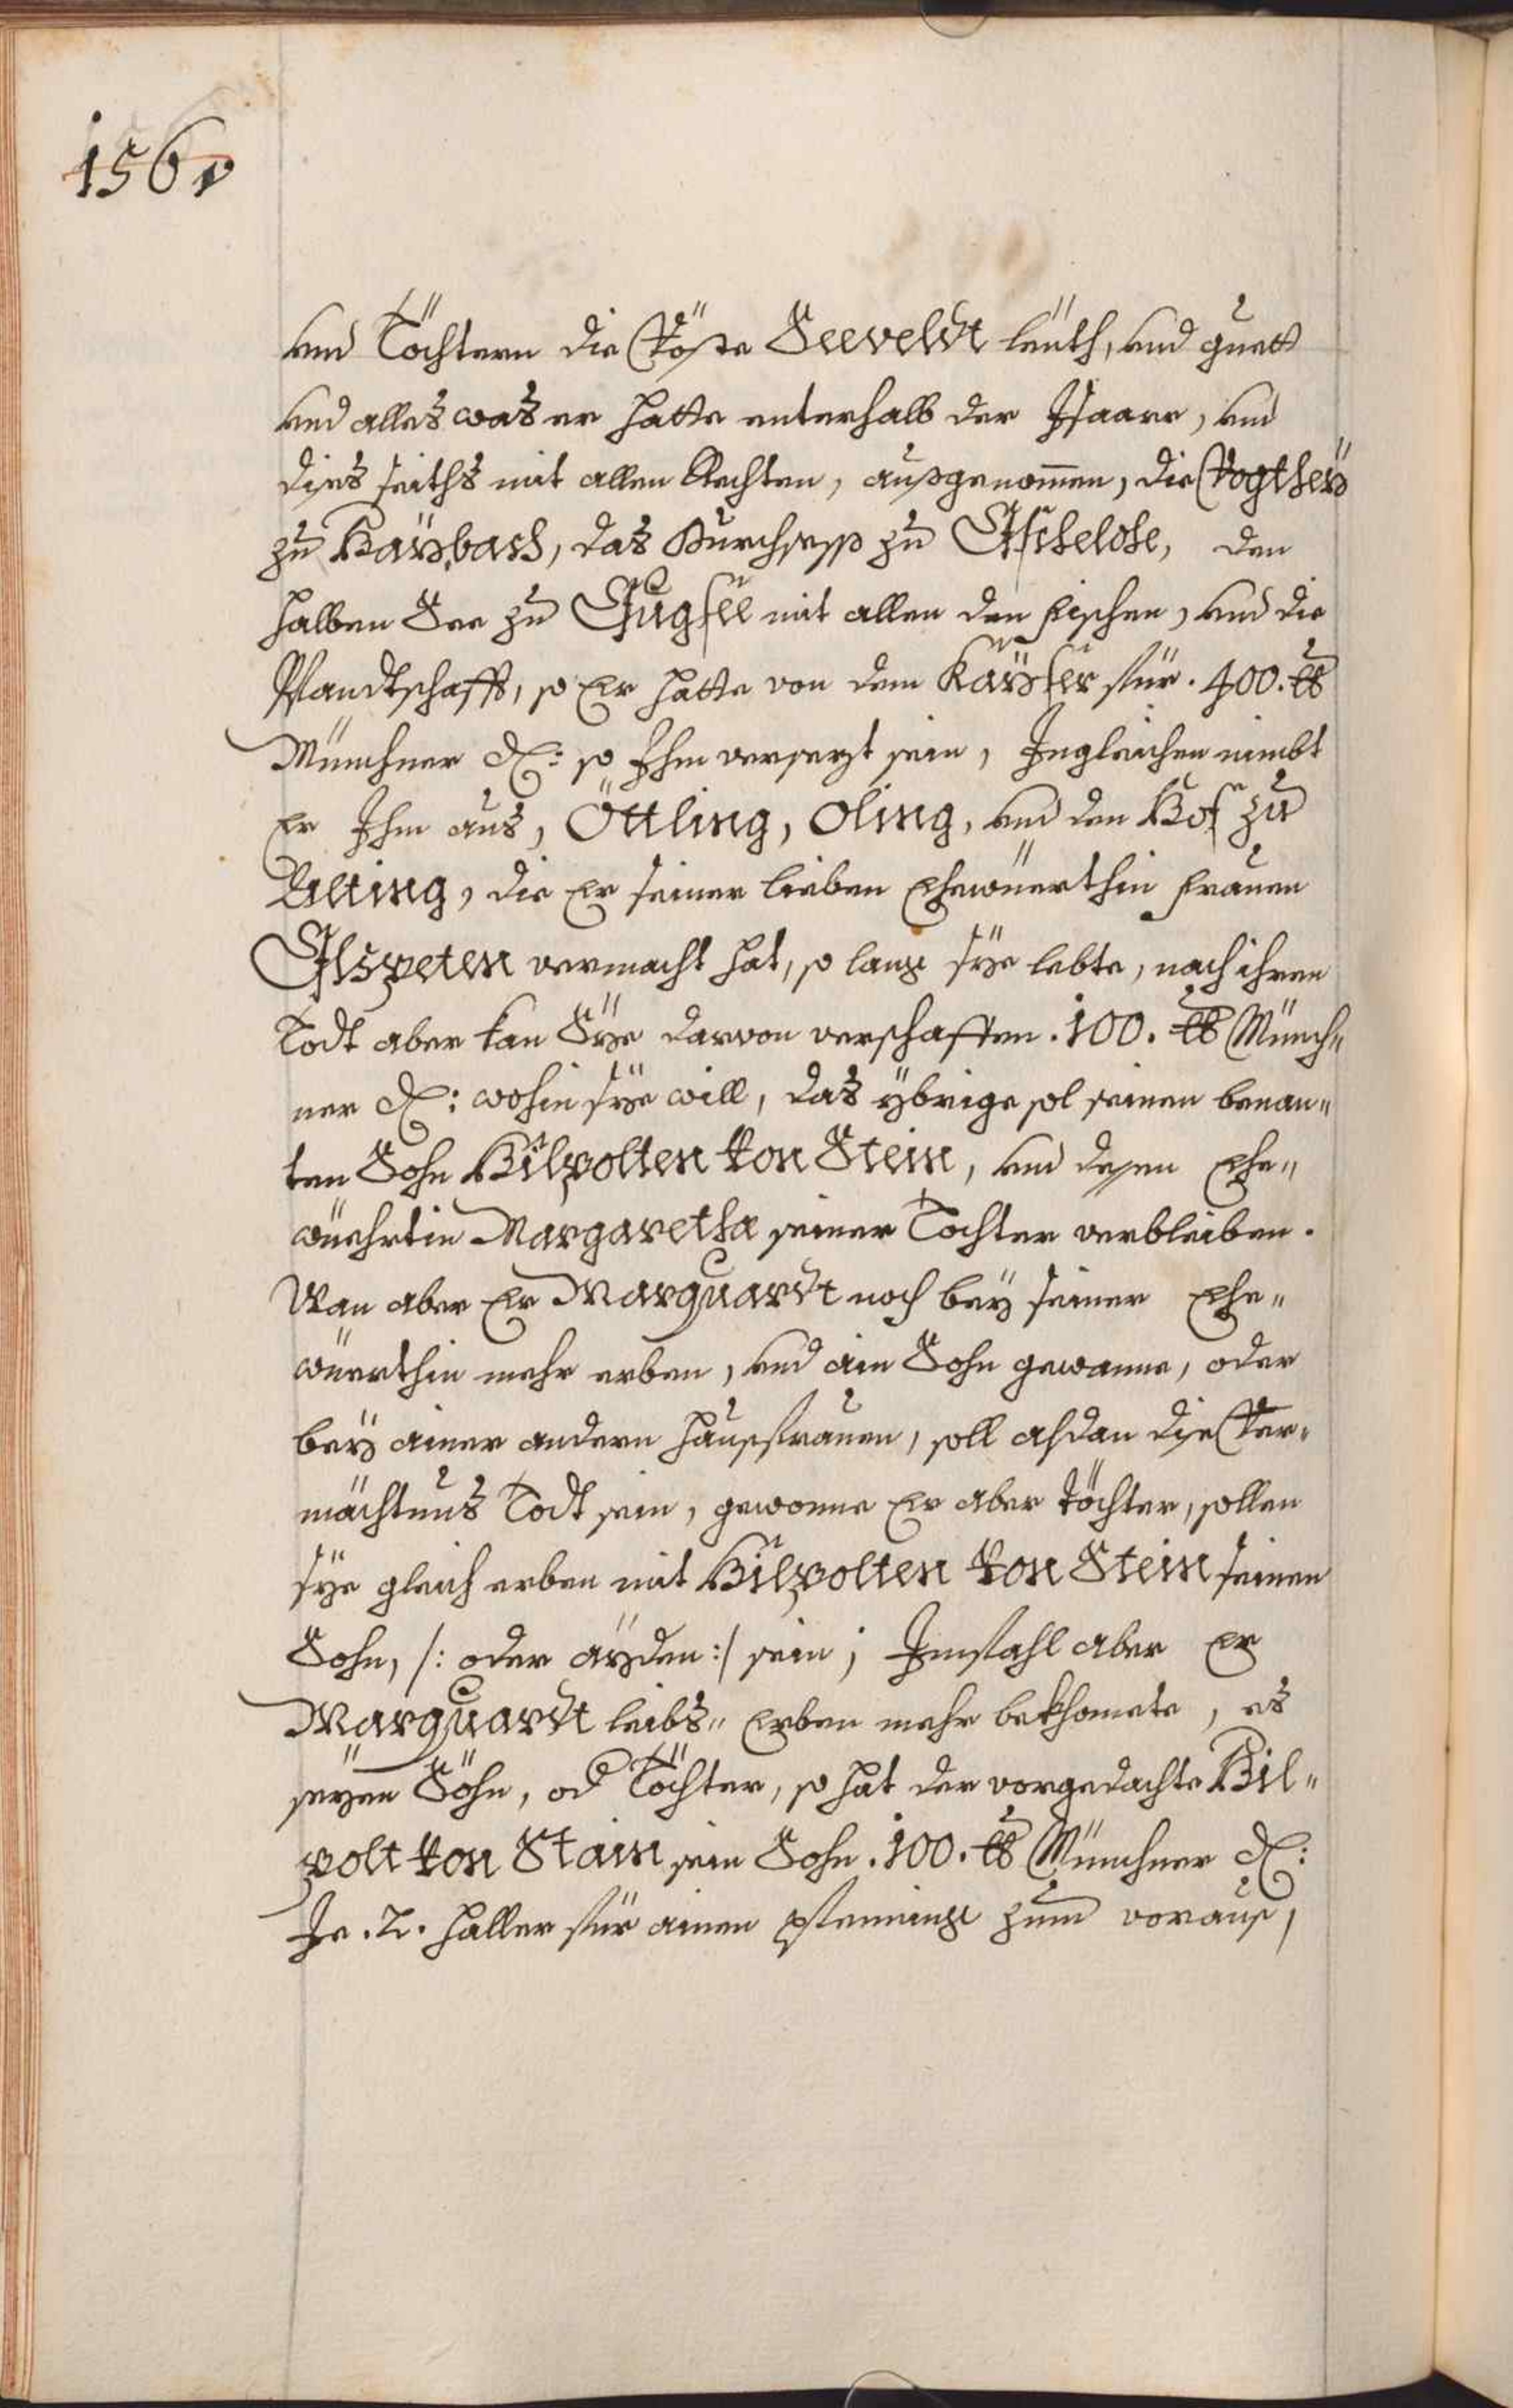 156v
und Töchtern die Vöste Seeveldt leüth, und guett
und alles was er hatte unterhalb der Isaare, und
disseiths mit allen Rechten, außgenommen, die Vogtheÿ
zu Haÿbach, das Burchsess zu Eschelohe, den
halben See zu Eugsee mit allen den fischen, und die
Pfandtschafft, so Er hatte von dem Kaÿser für . 400. ℔
Münchner ₰: so Ihm versezt sein, Ingleichen nimbt
Er Ihm aus, Öttling, Oling, und den Hof zu
Uelting, die Er seiner lieben Ehewüerthin frauen
Elspeten vermacht hat, so lang sÿe lebte, nach ihren
Todt aber kan Sÿe darvon verschaffen . 100. ℔ Münch„
ner ₰: wohin sÿe will, das ÿbrige sol seinen benan„
ten Sohn Hilpolten von Stein, und dessen Ehe„
wüehrtin Margaretha seiner Tochter verbleiben.
Wan aber Er Marquardt noch beÿ seiner Ehe„
wüerthin mehr erben, und ain Sohn gewanne, oder
beÿ ainer andern haussfrauen, soll alsdan dise Ver„
mächtnus Todt sein, gewonne Er aber töchter, sollen
sÿe gleich erben mit Hilpolten von Stein seinen
Sohn, /: oder aÿden :/ sein; Imfahl aber Er
Marquardt leibs„ Erben mehr bekhomete, es
seyen Söhn, od Töchter, so hat der vorgedachte Hil„
polt von Stain sein Sohn . 100. ℔ Münchner ₰:
Je . 2. haller für ainen pfenning zum voraus,